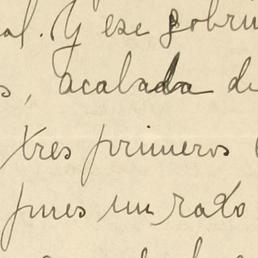 al. Y ese sobrin
s, acabada de
tres primeros
pues un rato